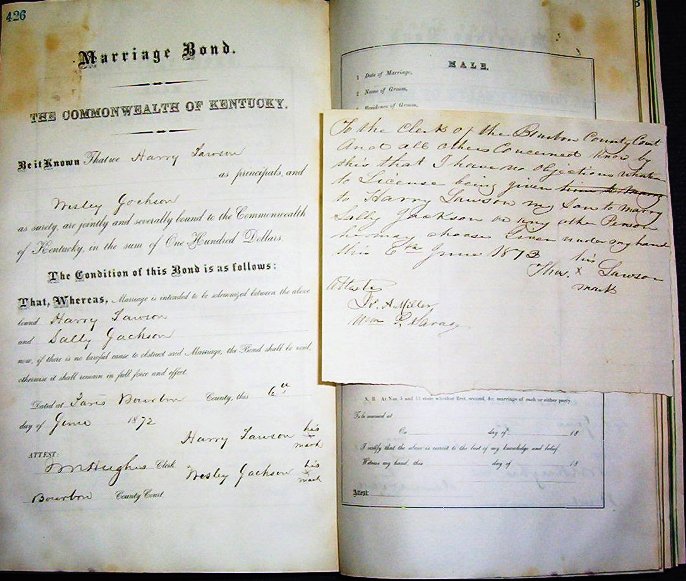 426
Marriage Bond.
THE COMMONWEALTH OF KENTUCKY.
Be it Known That we Harry Lawson
as principals, and
Wesley Jackson
as surety, are jointly and severally bound to the Commonwealth
of Kentucky, in the sum of One Hundred Dollars.
The Condition of this Bond is as follows:
That, Whereas, Marriage is intended to be solemnized between the above
bound Harry Lawson
and Sally Jackson
now, if there is no lawful cause to obstruct said Marriage, the Bond shall be void,
otherwise it shall remain in full force and effect.
Dated at Paris Bourbon County, this 6th
day of June 1872
Harry Lawson his mark
ATTEST:
Hughes Clerk
Wesley Jackson his mark
Bourbon County Court
MALE.
1 Date of Marriage,
2 Name of Groom,
3 Residence of Groom,
To the Clerk of the Bourbon County Court
And all others Concerned know by
this that I have no objections
to License being given
to Harry Lawson my Son to marry
Sally Jackson or any other Person
he may choose Given under my hand
this 6th June 1872
Thos. his x mark Lawson
Attest
A. Miller
Wm
N. B. At Nos. 5 and 13 state whether first, second, &c. marriage of each or either party.
To be married at
On day of 18
I certify that the above is correct to the best of my knowledge and belief.
Witness my hand, this day of 18
Attest: